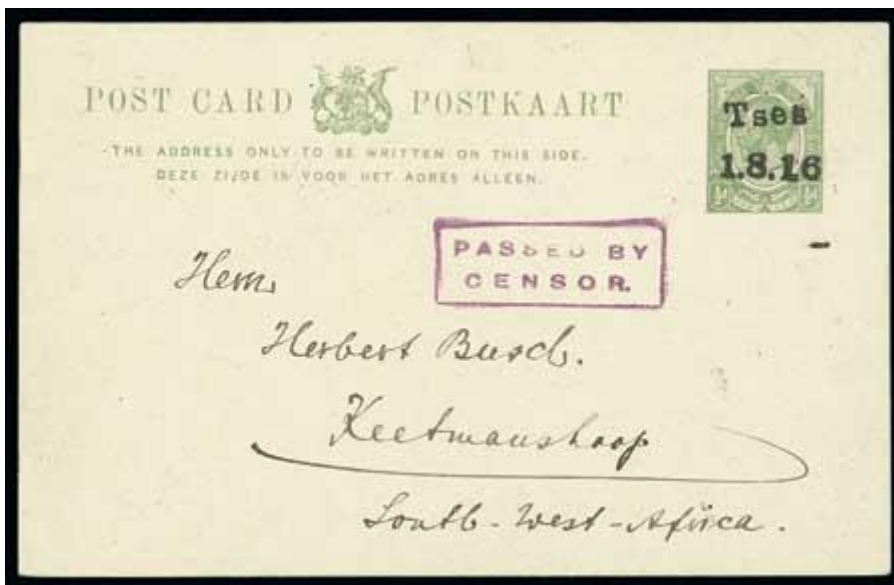 POST CARD POSTKAART
THE ADDRESS ONLY TO BE WRITTEN ON THIS SIDE.
DEZE ZIJDE IS VOOR HET ADRES ALLEEN.
Tses
1.8.16
½d
PASSED BY
CENSOR.
Herrn
Herbert Busch.
Keetmanshoop
South-West-Africa.